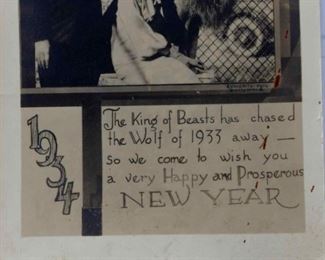 1934
The King of Beasts has chased
the Wolf of 1933 away —
so we come to wish you
a very Happy and Prosperous
NEW YEAR